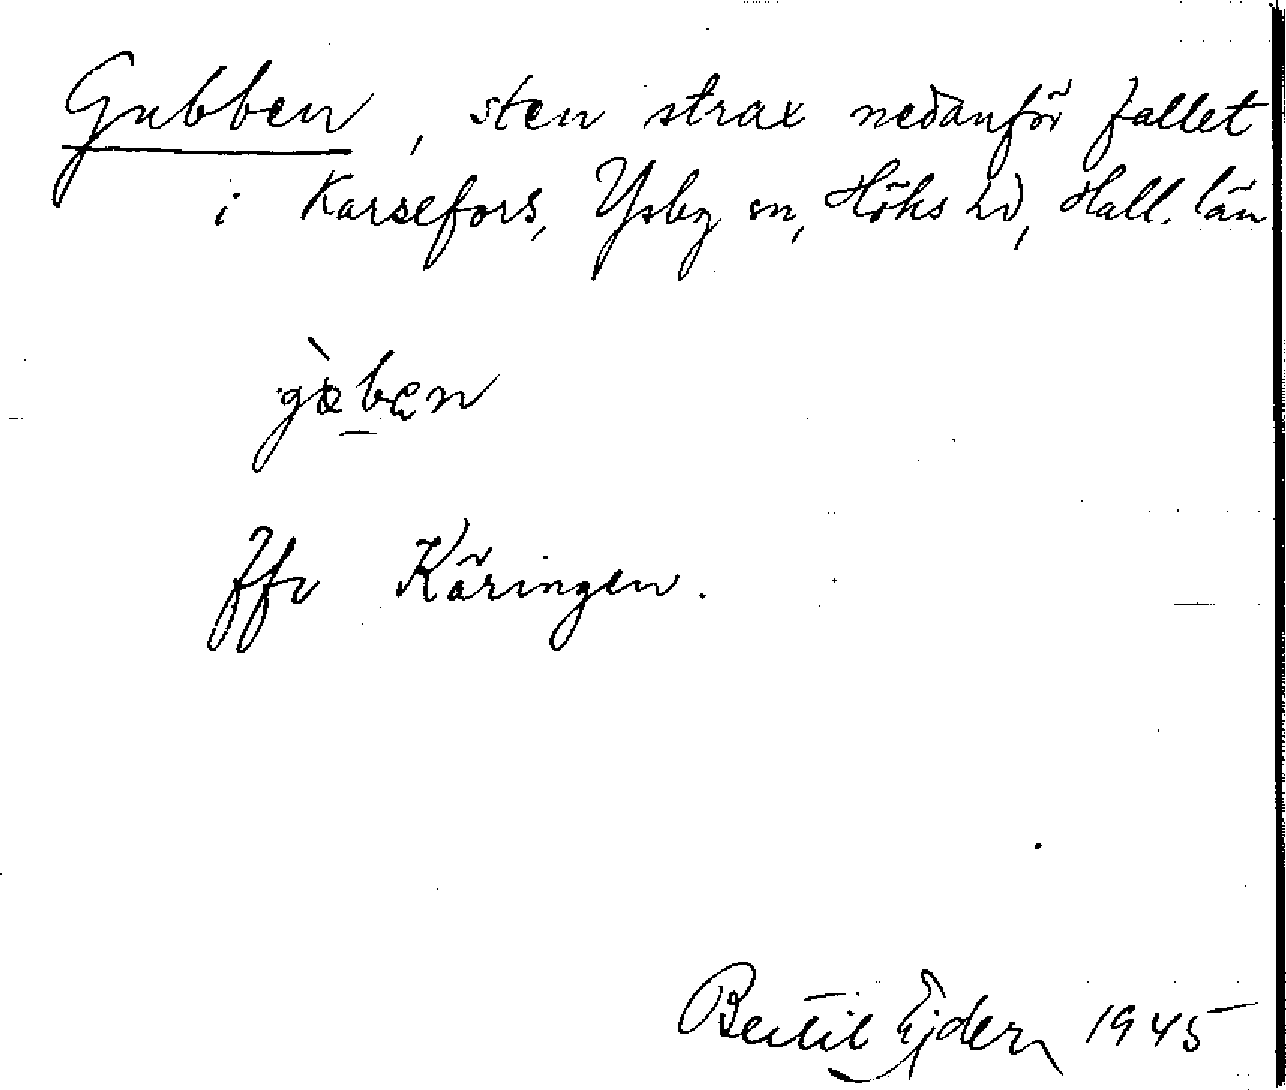 Gubben, sten strax nedanför fallet
i Karsefors, Ysby sn, Höks hd, Hall. län
Jfr Käringen.
Bertil Ejder 1945